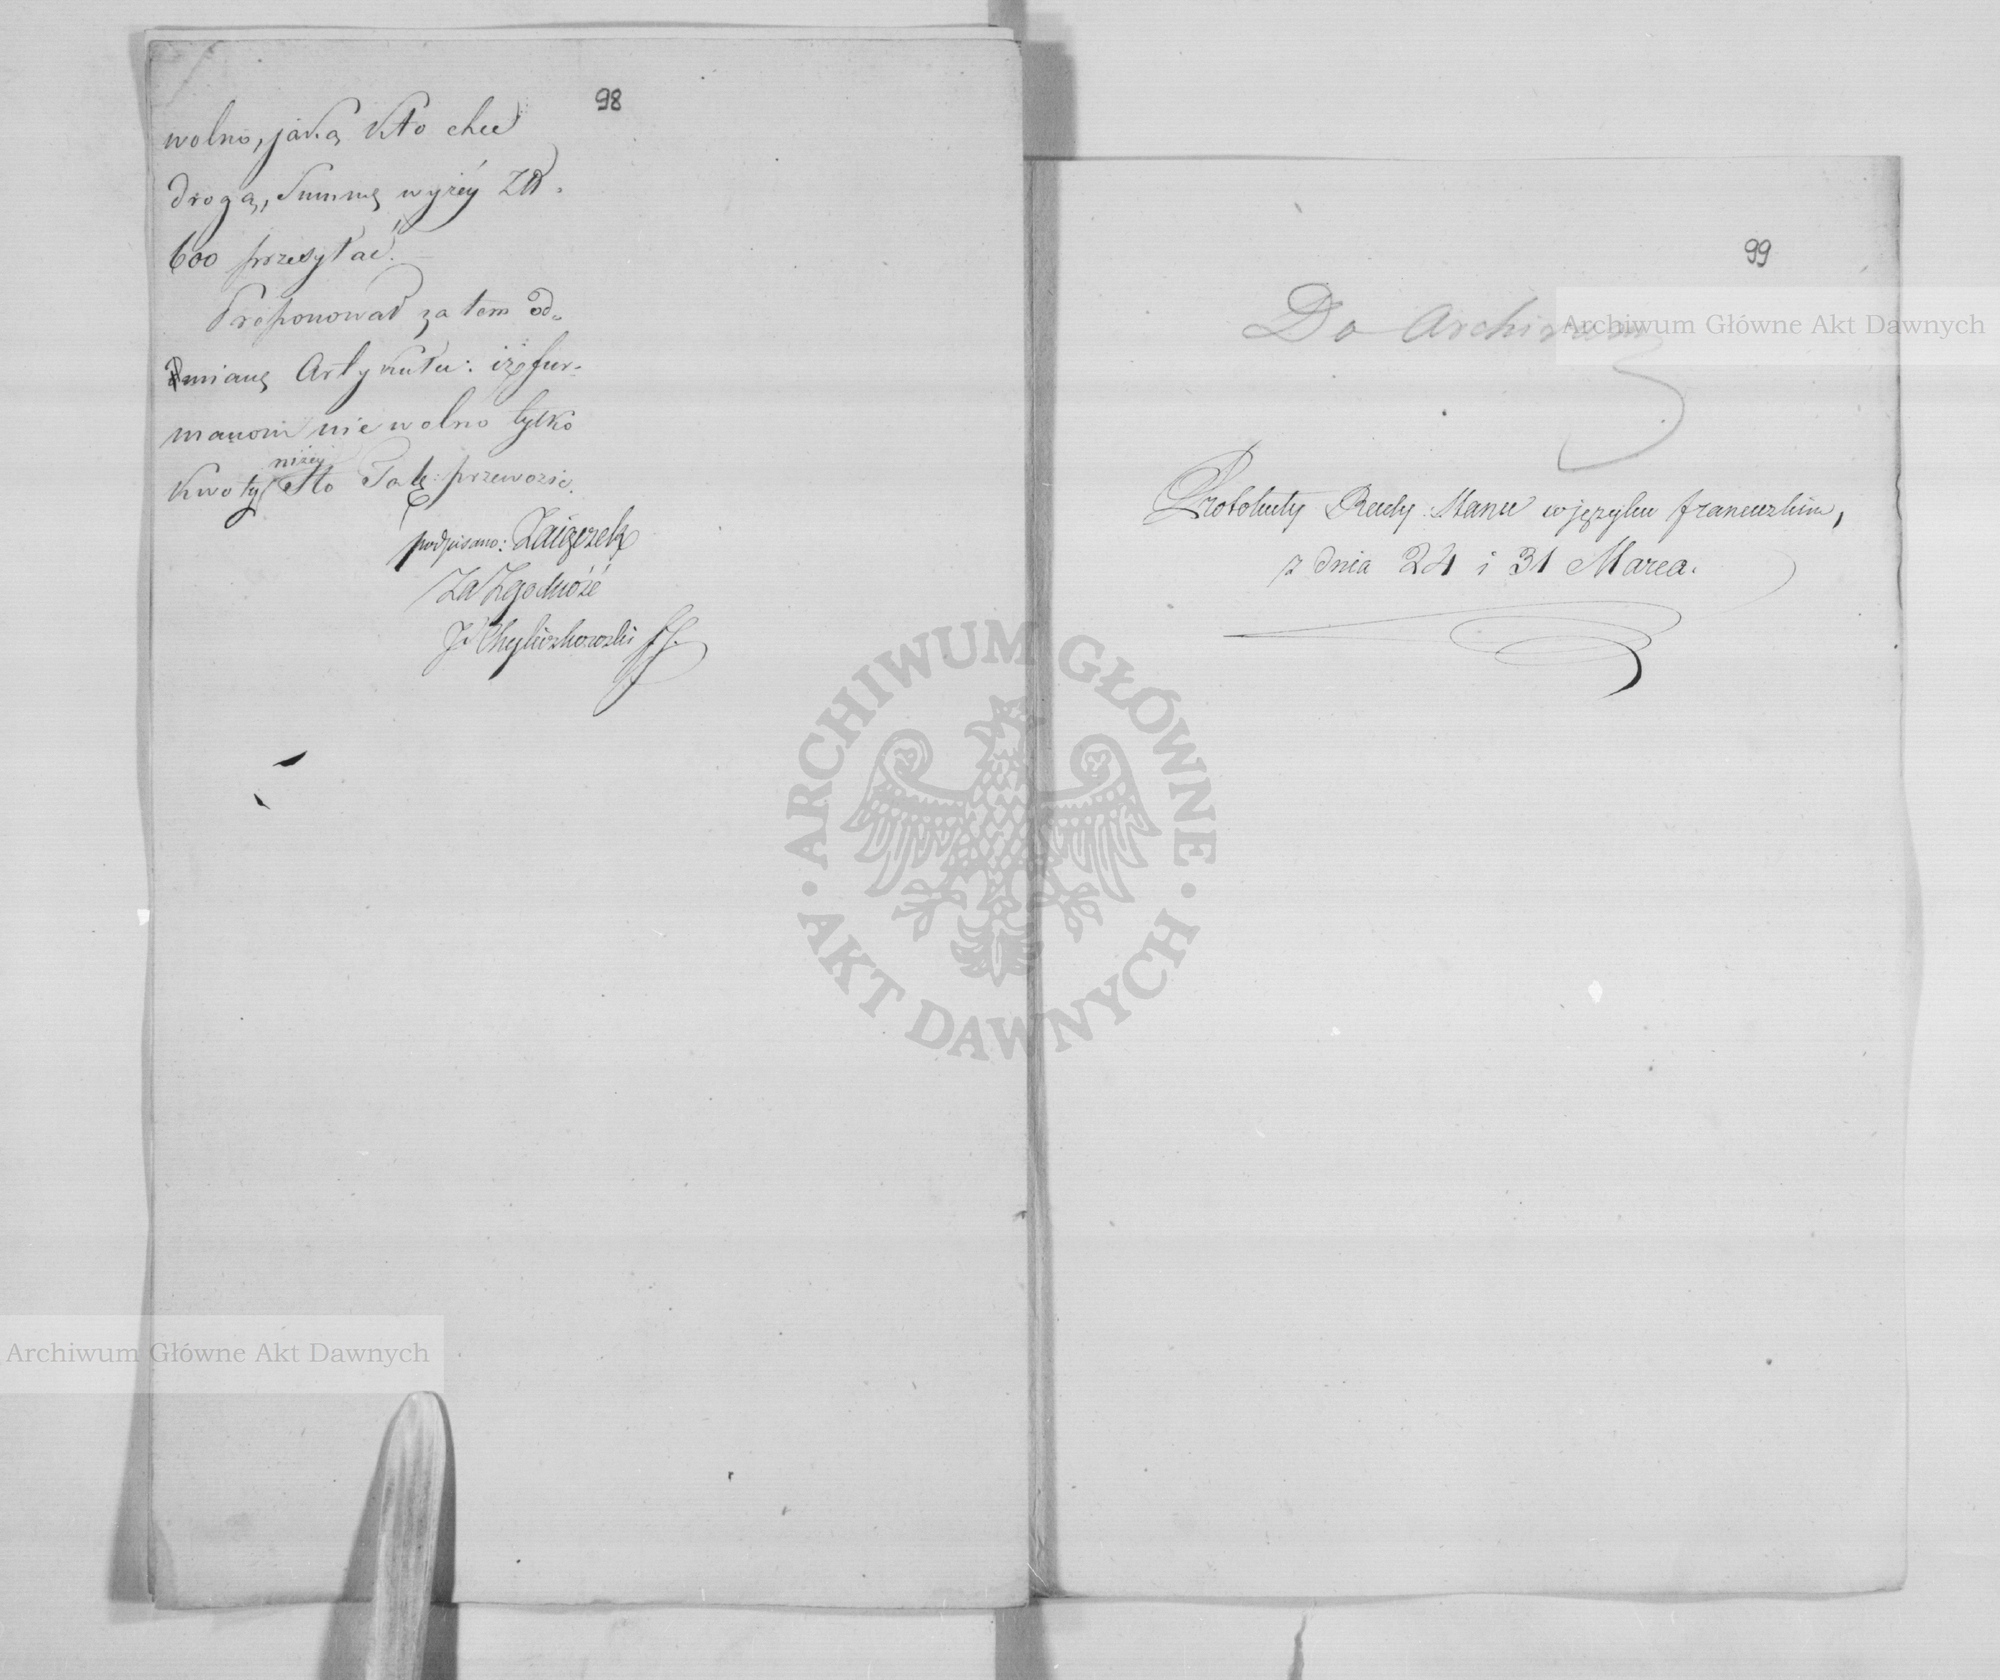 98
wolno, jaką kto chce
drogą, Summę wyżéy ZŁ.
600 przesyłać.
Proponował zatem od-
mianę Artykułu: iż fur-
manom nie wolno tylko
niżéy
kwoty sto Tal: przewozić.
podpisano: Zaiączek
Za Zgodność
J. Chyliczkowski
99
Do Archiwum
Protokuły Rady Stanu w języku francuzkim,
z dnia 24 i 31 Marca.
ARCHIWUM GŁÓWNE
AKT DAWNYCH
Archiwum Główne Akt Dawnych
Archiwum Główne Akt Dawnych